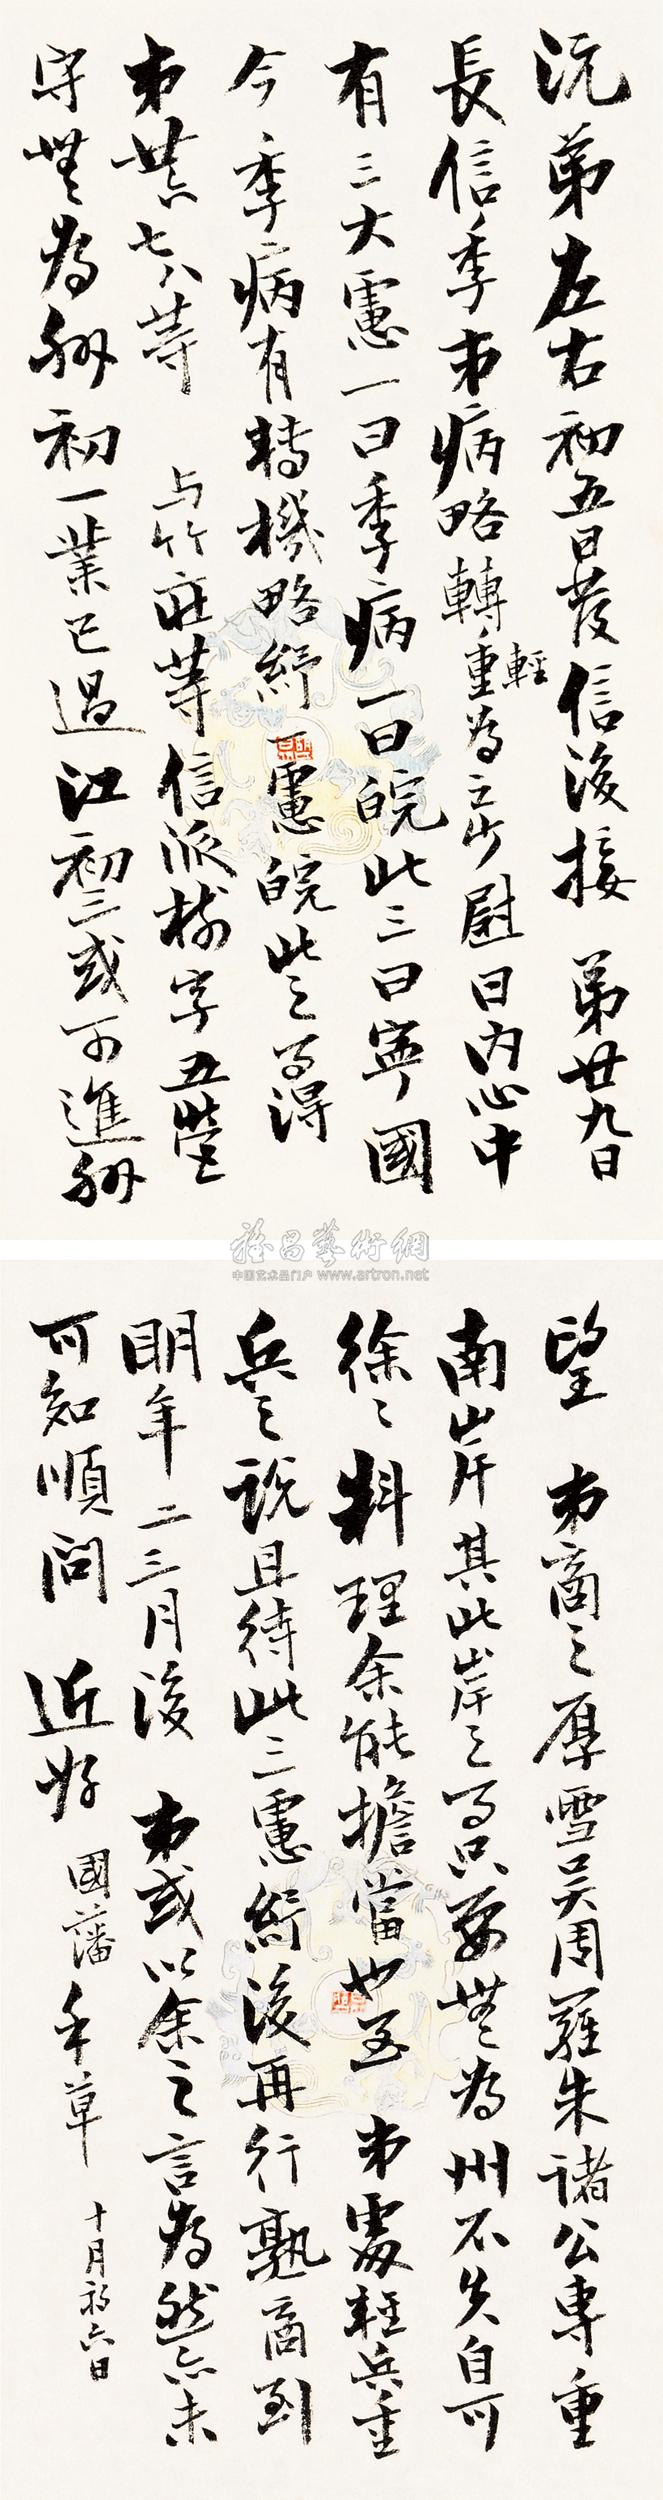 沅弟左右初五日發信後接 弟廿九日
長信季弟病略轉重輕為之少慰日內心中
有三大慮一曰季病一曰皖北三曰寧國
今季病有轉機略紓一慮皖北之事得
弟廿六七八等 與竹莊等信派樹字五營
守無為州初一業已過江初三或可進州
雅昌藝術網
中国艺术品门户 www.artron.net
望 弟商之厚雪吳周羅朱諸公專重
南岸其北岸之事只要無為州不失自可
徐〻料理余能擔當也至 弟處輕兵重
兵之說且待此三慮紓後再行熟商到
明年二三月後 弟或以余之言為然亦未
可知順問 近好 國藩手草 十月初六日